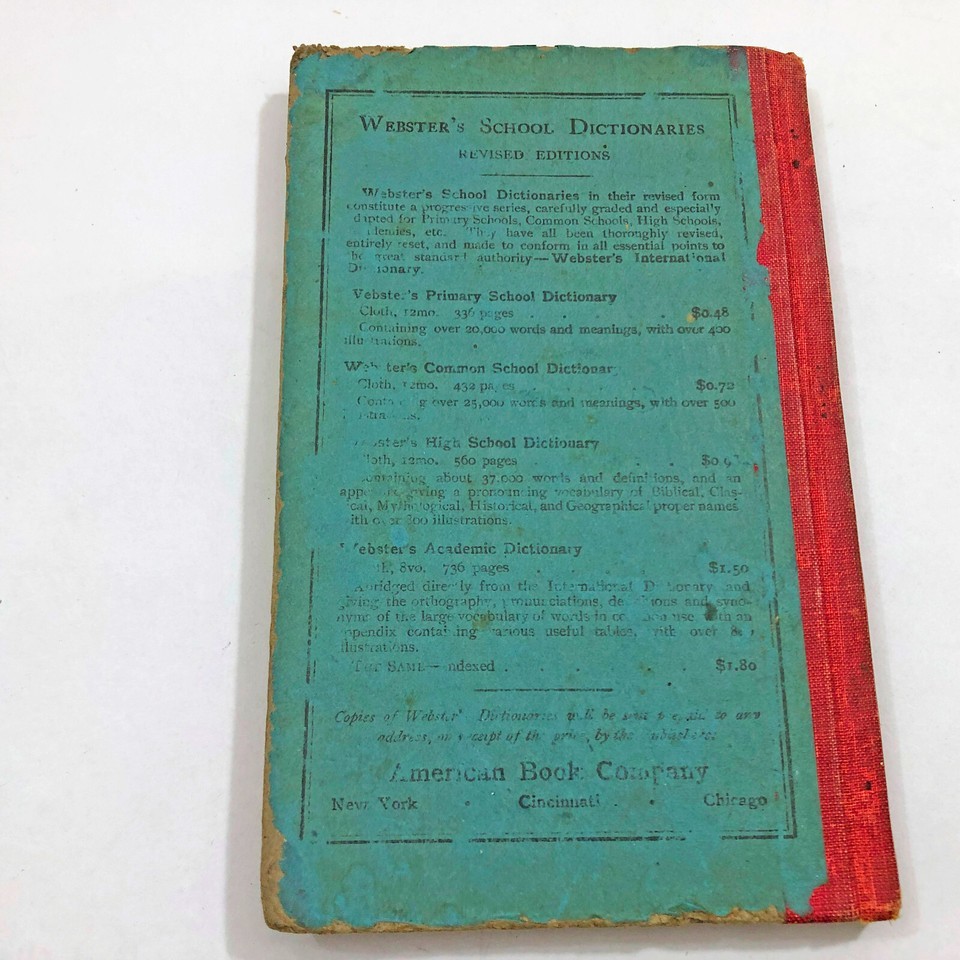 WEBSTER'S SCHOOL DICTIONARIES
REVISED EDITIONS
Webster's School Dictionaries in their revised form
constitute a progressive series, carefully graded and especially
adapted for Primary Schools, Common Schools, High Schools,
Academies, etc. They have all been thoroughly revised,
entirely reset, and made to conform in all essential points to
the great standard authority—Webster's International
Dictionary.
Webster's Primary School Dictionary
Cloth, 12mo. 336 pages . . . . $0.48
Containing over 20,000 words and meanings, with over 400
illustrations.
Webster's Common School Dictionary
Cloth, 12mo. 432 pages . . . . $0.72
Containing over 25,000 words and meanings, with over 500
illustrations.
Webster's High School Dictionary
Cloth, 12mo. 560 pages . . . .
Containing about 37,000 words and definitions, and an
appendix giving a pronouncing vocabulary of Biblical, Clas-
sical, Mythological, Historical, and Geographical proper names
with over 800 illustrations.
Webster's Academic Dictionary
Cloth, 8vo. 736 pages . . . . $1.50
Abridged directly from the International Dictionary and
giving the orthography, pronunciations, definitions and syno-
nyms of the large vocabulary of words in common use with an
appendix containing various useful tables, with over
illustrations.
THE SAME—Indexed . . . . . $1.80
Copies of Webster's Dictionaries will be sent prepaid to any
address, on receipt of the price, by the Publishers:
American Book Company
New York • Cincinnati • Chicago